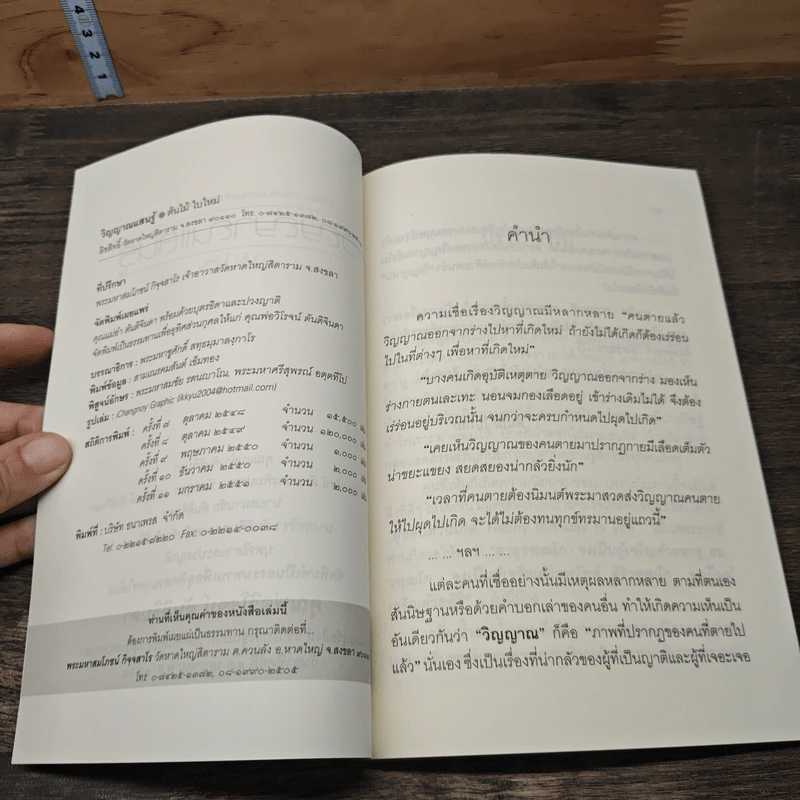 4 3 2 1
วิญญาณแสนรู้ ๏ ต้นไม้ ใบใหม่
ลิขสิทธิ์ วัดหาดใหญ่สิตาราม จ.สงขลา ๙๐๑๑๐ โทร. ๐-๗๔๒๕-๑๓๗๒,
ที่ปรึกษา
พระมหาสมโภชน์ กิจฺจสาโร เจ้าอาวาสวัดหาดใหญ่สิตาราม จ.สงขลา
จัดพิมพ์เผยแพร่
คุณแม่อำ ตันติจินดา พร้อมด้วยบุตรธิดาและปวงญาติ
จัดพิมพ์เป็นธรรมทานเพื่ออุทิศส่วนกุศลให้แก่ คุณพ่อวิโรจน์ ตันติจินดา
บรรณาธิการ : พระมหาชูศักดิ์ สทฺธมฺมาลงฺกาโร
พิมพ์ข้อมูล : สามเณรคมสันต์ เข็มทอง
พิสูจน์อักษร : พระมหาสมชัย รตนญาโณ, พระมหาศรีสุพรณ์ อตฺตทีโป
รูปเล่ม : iChangnoy Graphic (ikkyu2004@hotmail.com)
สถิติการพิมพ์ : ครั้งที่ ๗ ตุลาคม ๒๕๔๘ จำนวน ๑๕,๕๐๐
ครั้งที่ ๘ ตุลาคม ๒๕๔๙ จำนวน ๑๒๐,๐๐๐
ครั้งที่ ๙ พฤษภาคม ๒๕๕๐ จำนวน ๑,๐๐๐
ครั้งที่ ๑๐ ธันวาคม ๒๕๕๐ จำนวน ๒,๐๐๐
ครั้งที่ ๑๑ มกราคม ๒๕๕๑ จำนวน ๒,๐๐๐
พิมพ์ที่ : บริษัท ธนาเพรส จำกัด
Tel: ๐-๒๒๑๕-๗๒๒๐ Fax: ๐-๒๒๑๔-๐๐๓๘
ท่านที่เห็นคุณค่าของหนังสือเล่มนี้
ต้องการพิมพ์เผยแผ่เป็นธรรมทาน กรุณาติดต่อที่...
พระมหาสมโภชน์ กิจฺจสาโร วัดหาดใหญ่สิตาราม ต.ควนลัง อ.หาดใหญ่ จ.สงขลา
โทร ๐-๗๔๒๕-๑๓๗๒, ๐๘-๑๙๙๐-๒๕๐๕
คำนำ
ความเชื่อเรื่องวิญญาณมีหลากหลาย “คนตายแล้ว
วิญญาณออกจากร่างไปหาที่เกิดใหม่ ถ้ายังไม่ได้เกิดก็ต้องเร่ร่อน
ไปในที่ต่างๆ เพื่อหาที่เกิดใหม่”
“บางคนเกิดอุบัติเหตุตาย วิญญาณออกจากร่าง มองเห็น
ร่างกายตนเละเทะ นอนจมกองเลือดอยู่ เข้าร่างเดิมไม่ได้ จึงต้อง
เร่ร่อนอยู่บริเวณนั้น จนกว่าจะครบกำหนดไปผุดไปเกิด”
“เคยเห็นวิญญาณของคนตายมาปรากฏกายมีเลือดเต็มตัว
น่าขยะแขยง สยดสยองน่ากลัวยิ่งนัก”
“เวลาที่คนตายต้องนิมนต์พระมาสวดส่งวิญญาณคนตาย
ให้ไปผุดไปเกิด จะได้ไม่ต้องทนทุกข์ทรมานอยู่แถวนี้”
... ... ฯลฯ ... ...
แต่ละคนที่เชื่ออย่างนั้นมีเหตุผลหลากหลาย ตามที่ตนเอง
สันนิษฐานหรือด้วยคำบอกเล่าของคนอื่น ทำให้เกิดความเห็นเป็น
อันเดียวกันว่า “วิญญาณ” ก็คือ “ภาพที่ปรากฏของคนที่ตายไป
แล้ว” นั่นเอง ซึ่งเป็นเรื่องที่น่ากลัวของผู้ที่เป็นญาติและผู้ที่เจอะเจอ